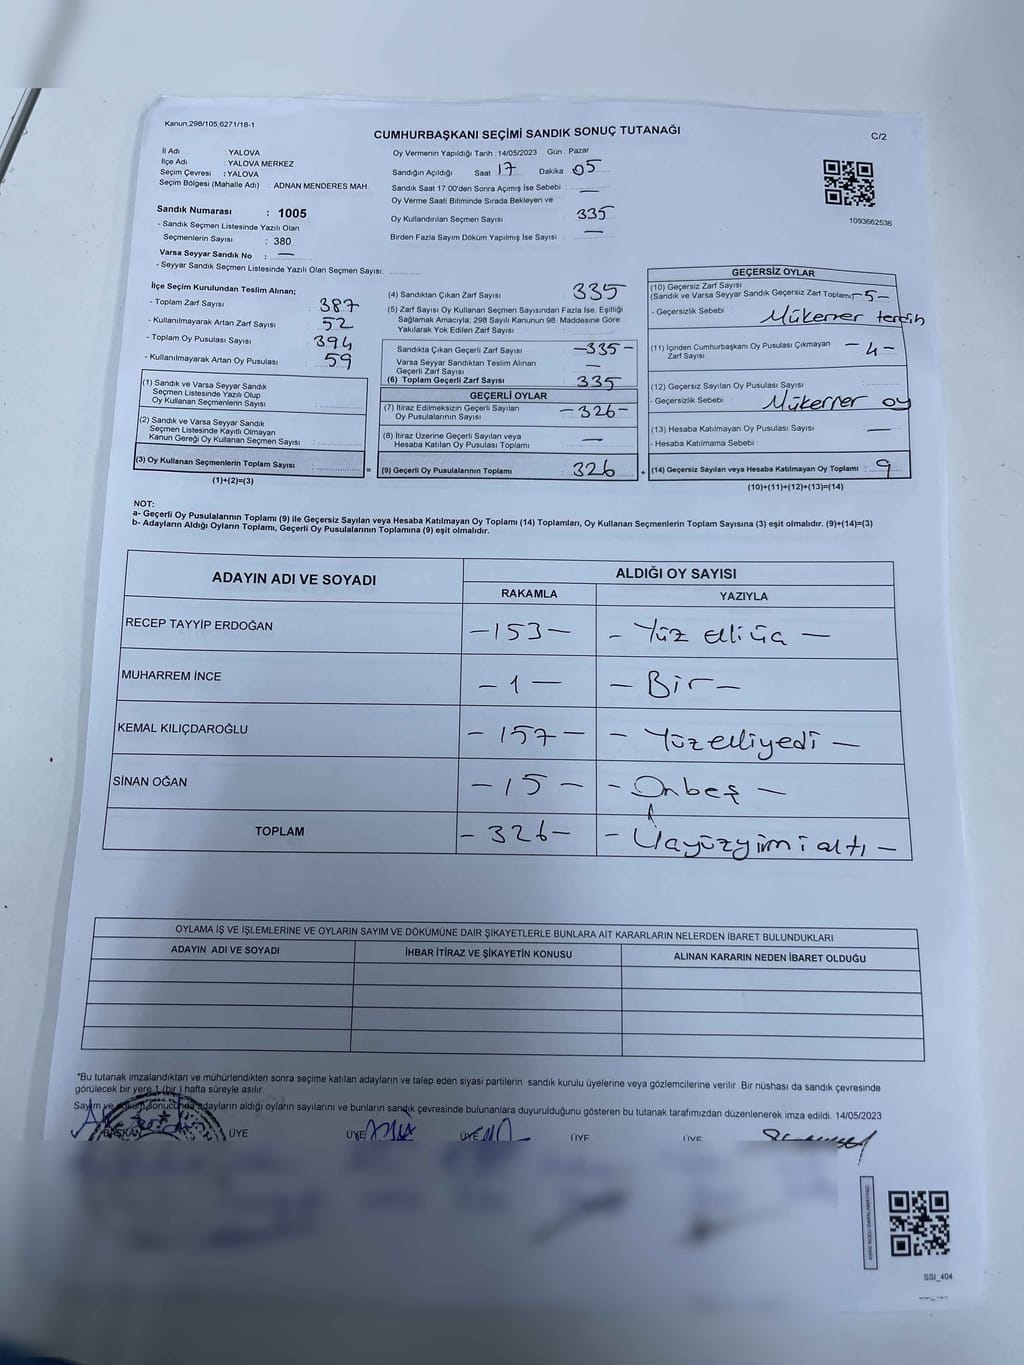 Kanun.298/105,6271/18-1
CUMHURBAŞKANI SEÇİMİ SANDIK SONUÇ TUTANAĞI
C/2
İl Adı : YALOVA
İlçe Adı : YALOVA MERKEZ
Seçim Çevresi : YALOVA
Seçim Bölgesi (Mahalle Adı) : ADNAN MENDERES MAH
Sandık Numarası : 1005
- Sandık Seçmen Listesinde Yazılı Olan
Seçmenlerin Sayısı : 380
Varsa Seyyar Sandık No : —
- Seyyar Sandık Seçmen Listesinde Yazılı Olan Seçmen Sayısı: ............
Oy Vermenin Yapıldığı Tarih : 14/05/2023 Gün : Pazar
Sandığın Açıldığı Saat 17 Dakika 05
Sandık Saat 17:00'den Sonra Açımış İse Sebebi : —
Oy Verme Saati Bitiminde Sırada Bekleyen ve
Oy Kullandırılan Seçmen Sayısı : 335
Birden Fazla Sayım Döküm Yapılmış İse Sayısı : —
1093662536
İlçe Seçim Kurulundan Teslim Alınan;
- Toplam Zarf Sayısı : 387
- Kullanılmayarak Artan Zarf Sayısı : 52
- Toplam Oy Pusulası Sayısı : 394
- Kullanılmayarak Artan Oy Pusulası : 59
(1) Sandık ve Varsa Seyyar Sandık
Seçmen Listesinde Yazılı Olup
Oy Kullanan Seçmenlerin Sayısı :
(2) Sandık ve Varsa Seyyar Sandık
Seçmen Listesinde Kayıtlı Olmayan
Kanun Gereği Oy Kullanan Seçmen Sayısı :
(3) Oy Kullanan Seçmenlerin Toplam Sayısı :
(1)+(2)=(3)
(4) Sandıktan Çıkan Zarf Sayısı : 335
(5) Zarf Sayısı Oy Kullanan Seçmen Sayısından Fazla İse, Eşitliği
Sağlamak Amacıyla; 298 Sayılı Kanunun 98. Maddesine Göre
Yakılarak Yok Edilen Zarf Sayısı :
Sandıkta Çıkan Geçerli Zarf Sayısı : —335—
Varsa Seyyar Sandıktan Teslim Alınan
Geçerli Zarf Sayısı : —
(6) Toplam Geçerli Zarf Sayısı : 335
GEÇERLİ OYLAR
(7) İtiraz Edilmeksizin Geçerli Sayılan
Oy Pusulalarının Sayısı : —326—
(8) İtiraz Üzerine Geçerli Sayılan veya
Hesaba Katılan Oy Pusulası Toplamı : —
= (9) Geçerli Oy Pusulalarının Toplamı : 326
GEÇERSİZ OYLAR
(10) Geçersiz Zarf Sayısı
(Sandık ve Varsa Seyyar Sandık Geçersiz Zarf Toplamı) —5—
- Geçersizlik Sebebi : Mükerrer tercih
(11) İçinden Cumhurbaşkanı Oy Pusulası Çıkmayan
Zarf Sayısı : —4—
(12) Geçersiz Sayılan Oy Pusulası Sayısı :
- Geçersizlik Sebebi : Mükerrer oy
(13) Hesaba Katılmayan Oy Pusulası Sayısı : —
- Hesaba Katılmama Sebebi :
+ (14) Geçersiz Sayılan veya Hesaba Katılmayan Oy Toplamı : 9
(10)+(11)+(12)+(13)=(14)
NOT:
a- Geçerli Oy Pusulalarının Toplamı (9) ile Geçersiz Sayılan veya Hesaba Katılmayan Oy Toplamı (14) Toplamları, Oy Kullanan Seçmenlerin Toplam Sayısına (3) eşit olmalıdır. (9)+(14)=(3)
b- Adayların Aldığı Oyların Toplamı, Geçerli Oy Pusulalarının Toplamına (9) eşit olmalıdır.
ADAYIN ADI VE SOYADI
ALDIĞI OY SAYISI
RAKAMLA YAZIYLA
RECEP TAYYİP ERDOĞAN —153— — Yüz elli üç —
MUHARREM İNCE —1— — Bir —
KEMAL KILIÇDAROĞLU —157— — Yüzelliyedi —
SİNAN OĞAN —15— — Onbeş —
TOPLAM —326— — Üçyüzyirmialtı —
OYLAMA İŞ VE İŞLEMLERİNE VE OYLARIN SAYIM VE DÖKÜMÜNE DAİR ŞİKAYETLERLE BUNLARA AİT KARARLARIN NELERDEN İBARET BULUNDUKLARI
ADAYIN ADI VE SOYADI İHBAR İTİRAZ VE ŞİKAYETİN KONUSU ALINAN KARARIN NEDEN İBARET OLDUĞU
*Bu tutanak imzalandıktan ve mühürlendikten sonra seçime katılan adayların ve talep eden siyasi partilerin sandık kurulu üyelerine veya gözlemcilerine verilir .Bir nüshası da sandık çevresinde
görülecek bir yere 1 (bir ) hafta süreyle asılır.
Sayım ve döküm sonucunda adayların aldığı oyların sayılarını ve bunların sandık çevresinde bulunanlara duyurulduğunu gösteren bu tutanak tarafımızdan düzenlenerek imza edildi. 14/05/2023
BAŞKAN ÜYE ÜYE ÜYE ÜYE ÜYE
SSI_404